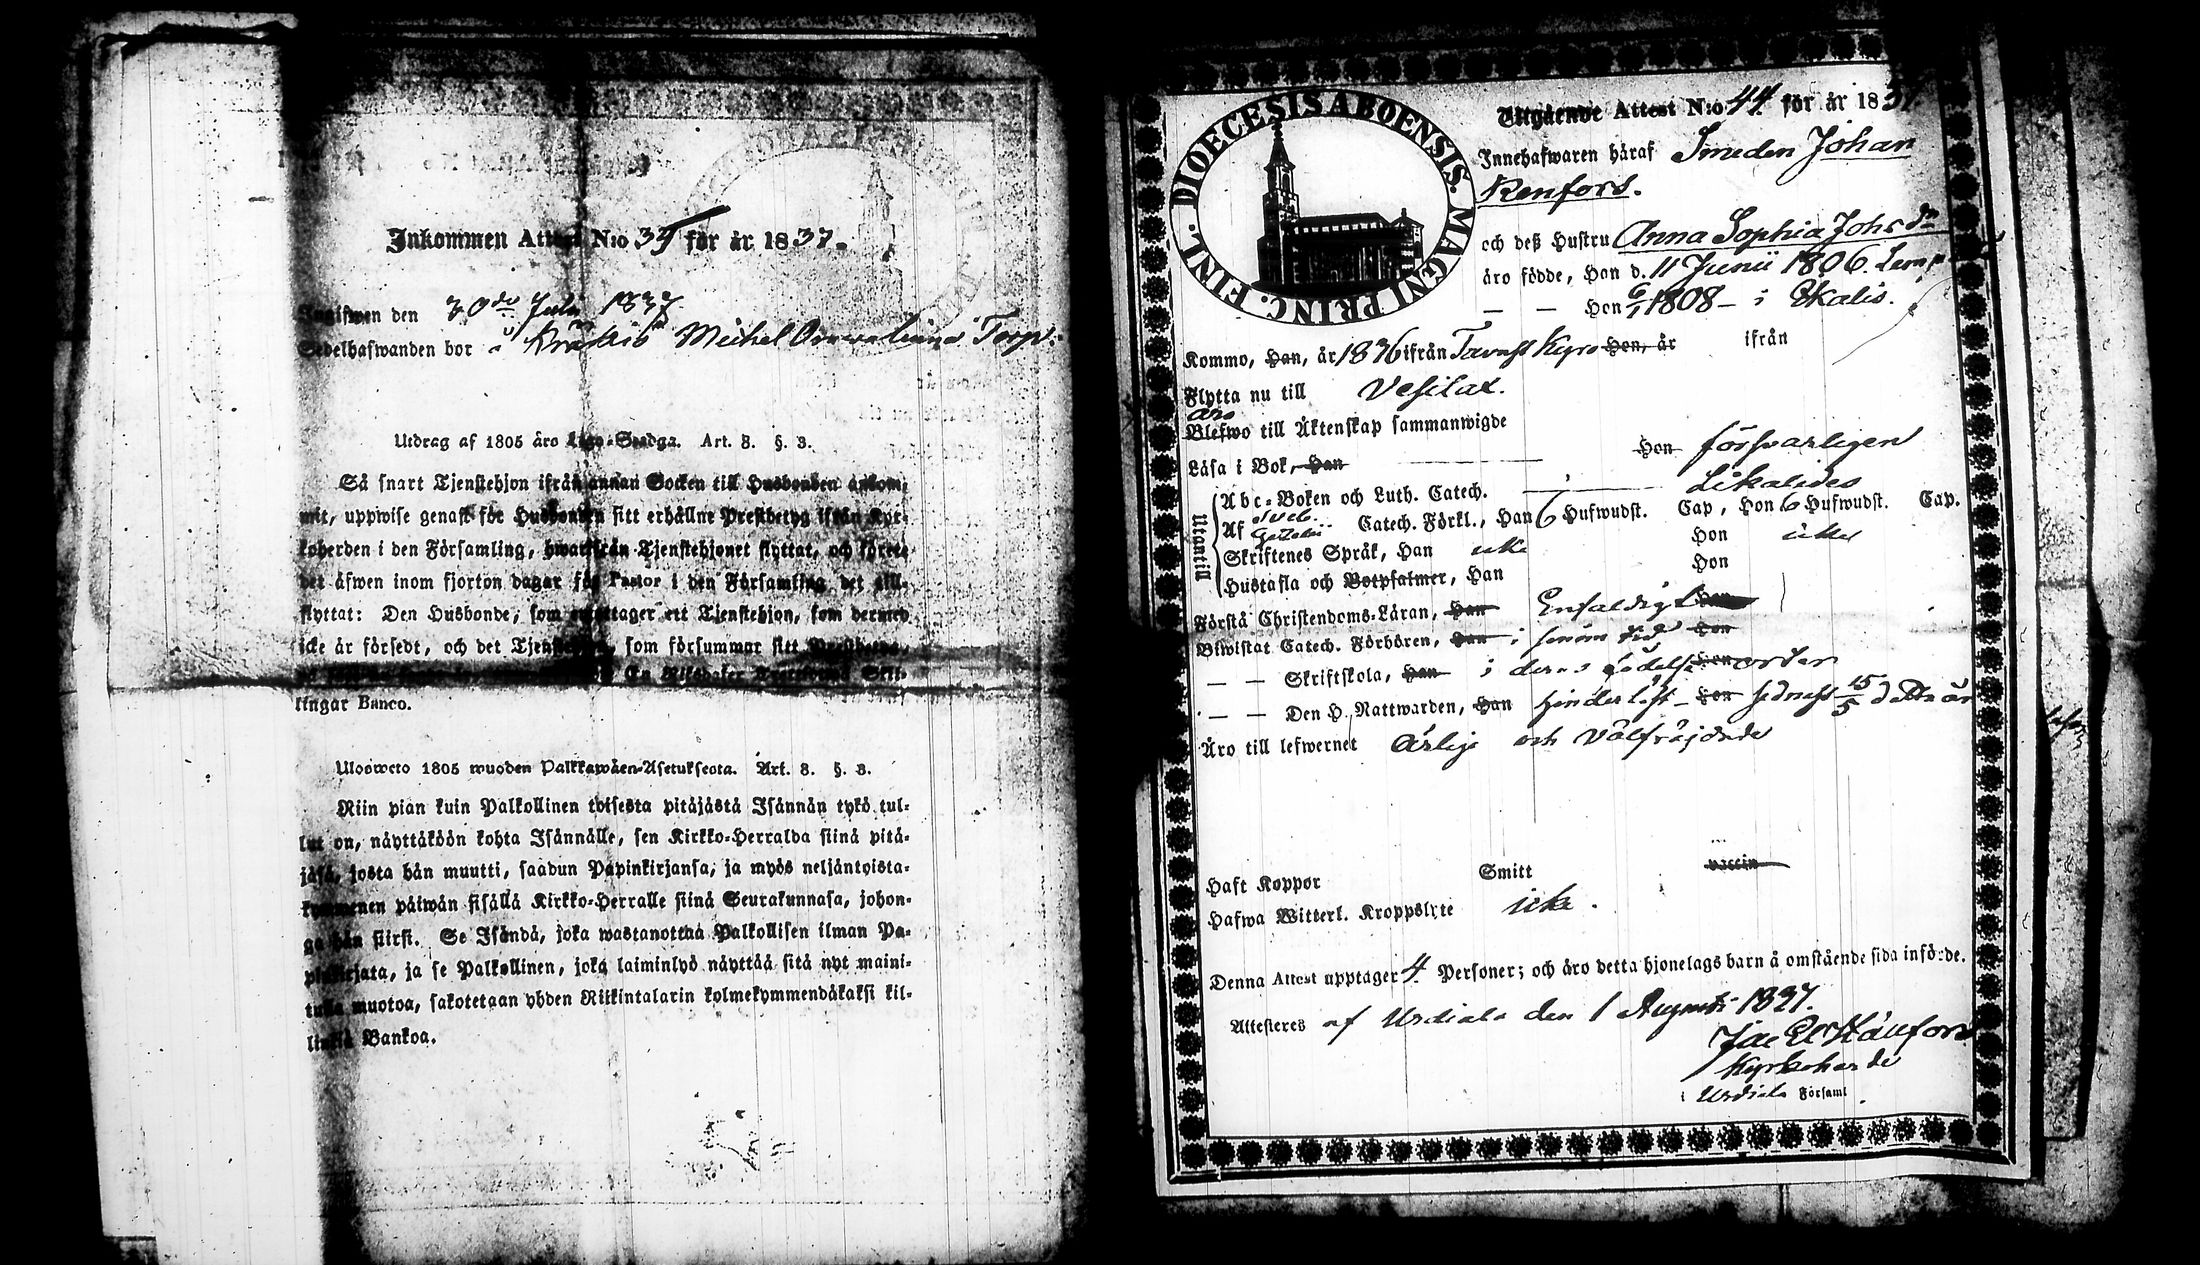 Inkommen Attest N:o 35 för år 1837.
Ingifwen den 30de Juli 1837
Sedelhafwanden bor Michel Torp:
Utdrag af 1805 års Lego-Stadga. Art. 8. §. 3.
Så snart Tjenstehjon ifrån annan Socken till Husbonden ankom-
mit, uppwise genast för Husbonden sitt erhållne Prestbetyg ifrån Kyr-
koherden i den Församling, hwarifrån Tjenstehjonet flyttat, och förete
det äfwen inom fjorton dagar för Pastor i den Församling det till-
flyttat: Den Husbonde, som emottager ett Tjenstehjon, som dermed
icke är försedt, och det Tjenstehjon, som försummar sitt Prestbetyg
En Riksdaler Skil-
lingar Banco.
Ulosweto 1805 wuoden Palkkawäen-Asetuksesta. Art. 8. §. 3.
Niin pian kuin Palkollinen toisesta pitäjästä Isännän tykö tul-
lut on, näyttäköön kohta Isännälle, sen Kirkko-Herralda siinä pitä-
jäsä, josta hän muutti, saadun Papinkirjansa, ja myös neljäntoista-
kymmenen päiwän sisällä Kirkko-Herralle siinä Seurakunnasa, johon-
ga hän siirsi. Se Isändä, joka wastanottaa Palkollisen ilman Pa-
pinkirjata, ja se Palkollinen, joka laiminlyö näyttää sitä nyt maini-
tulla muotoa, sakotetaan yhden Riikintalarin kolmekymmendäkaksi kil-
linkiä Bankoa.
DIOECESIS ABOENSIS. MAGNI PRINC. FINL.
Utgående Attest N:o 44 för år 1837.
Innehafwaren häraf Smeden Johan
Renfors.
och deß Hustru Anna Sophia Johsdr
äro födde, Han d. 11 Junii 1806.
— — Hon 6/1 1808 — i Ikalis.
Kommo, Han, år 1836 ifrån Tavast Kyro Hon, år ifrån
Flytta nu till Vesilax.
äro
Blefwo till Äktenskap sammanwigde
Läsa i Bok, Han Hon försvarligen
Utantill
Abc-Boken och Luth. Catech. Likaledes
Af Sveb. Catech. Förkl., Han 6 Hufwudst. Cap, Hon 6 Hufwudst. Cap.
Gezelii
Skriftenes Språk, Han icke Hon icke
Hustafla och Botpsalmer, Han Hon
Förstå Christendoms-Läran, Han Enfaldigt Hon
Biwistat Catech. Förhören, Han i sinom tid Hon
— — Skriftskola, Han i deras födelse Hon orter
— — Den H. Nattwarden, Han hinderlöst — Hon sednast 15/5 detta år
Äro till lefwernet ärlige och välfräjdade
Haft Koppor Smitt vaccin
Hafwa Witterl. Kroppslyte icke.
Denna Attest upptager 4 Personer; och äro detta hjonelags barn å omstående sida införde.
Attesteres af Urdiala den 1 Augusti 1837.
Kyrkoherde
i Urdiala Församl.